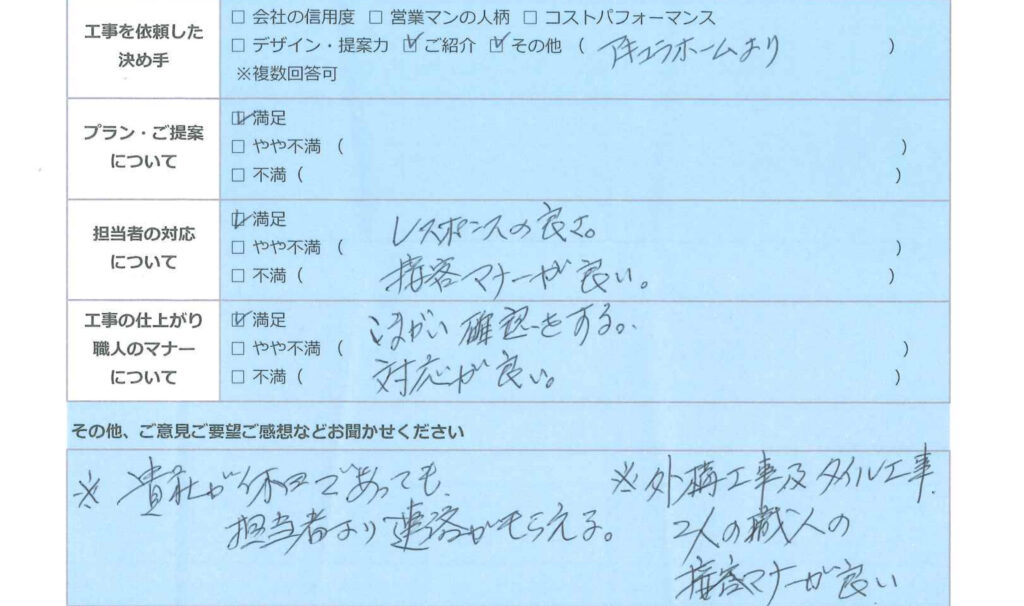 工事を依頼した
決め手
□ 会社の信用度 □ 営業マンの人柄 □ コストパフォーマンス
□ デザイン・提案力 ☑ ご紹介 ☑ その他 ( アキュラホームより )
※複数回答可
プラン・ご提案
について
☑ 満足
□ やや不満 ( )
□ 不満 ( )
担当者の対応
について
☑ 満足
□ やや不満 ( レスポンスの良さ。 )
□ 不満 ( 接客マナーが良い。 )
工事の仕上がり
職人のマナー
について
☑ 満足
□ やや不満 ( こまかい確認をする。 )
□ 不満 ( 対応が良い。 )
その他、ご意見ご要望ご感想などお聞かせください
※ 貴社が休日であっても、
担当者より連絡がもらえる。
※外構工事及タイル工事、
2人の職人の
接客マナーが良い